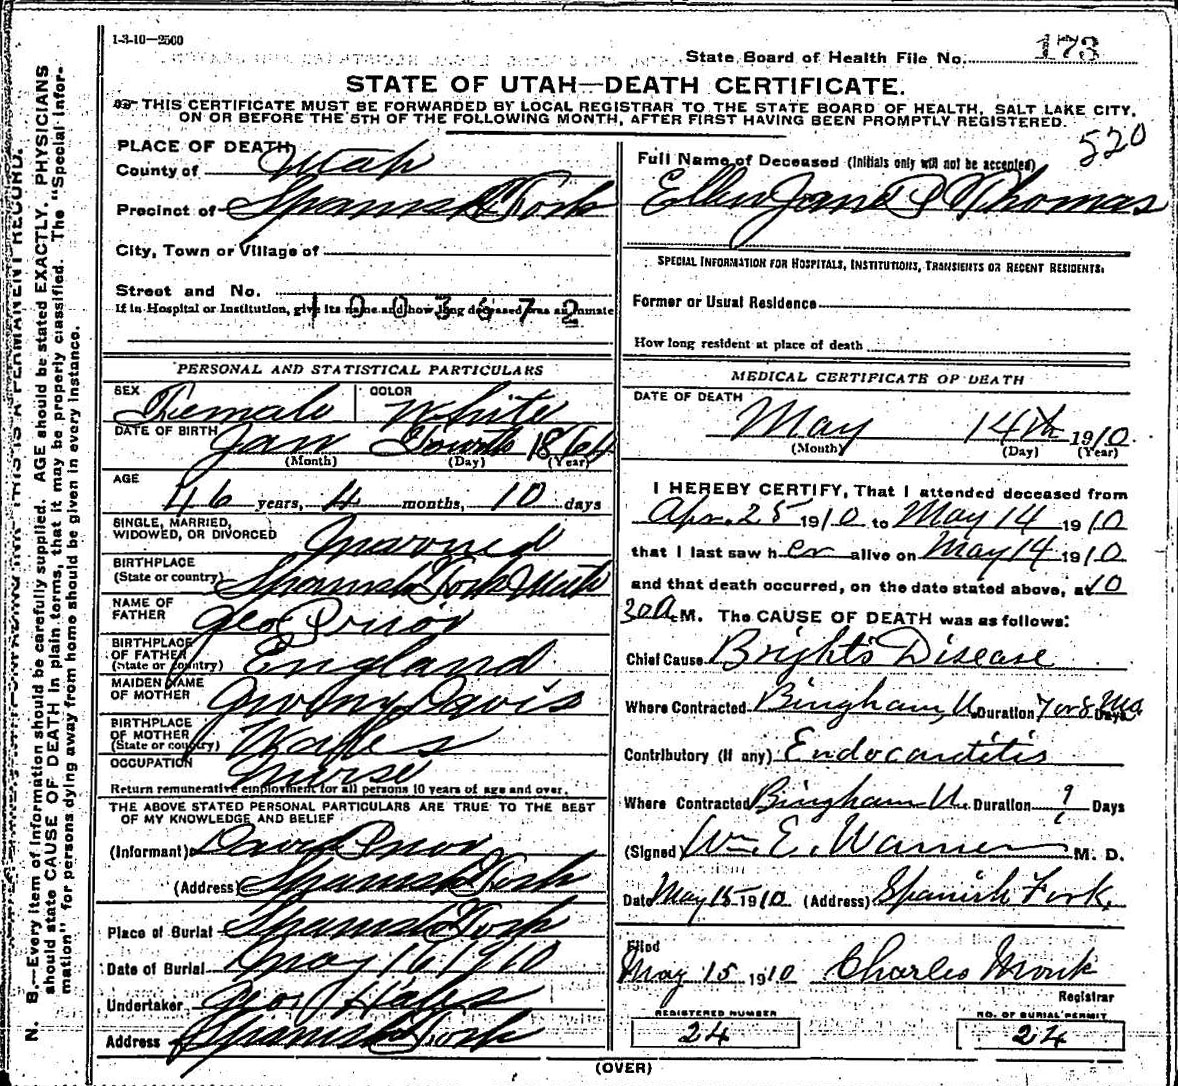 1-3-10—2500
State Board of Health File No. 173
STATE OF UTAH—DEATH CERTIFICATE.
THIS CERTIFICATE MUST BE FORWARDED BY LOCAL REGISTRAR TO THE STATE BOARD OF HEALTH, SALT LAKE CITY,
ON OR BEFORE THE 5TH OF THE FOLLOWING MONTH, AFTER FIRST HAVING BEEN PROMPTLY REGISTERED.
520
N. B.—Every item of Information should be carefully supplied. AGE should be stated EXACTLY. PHYSICIANS
should state CAUSE OF DEATH in plain terms, that it may be properly classified. The "Special Infor-
mation" for persons dying away from home should be given in every instance.
PLACE OF DEATH
County of Utah
Precinct of Spanish Fork
City, Town or Village of
Street and No.
If in Hospital or Institution, give its name and how long deceased was an inmate
1003672
PERSONAL AND STATISTICAL PARTICULARS
SEX Female COLOR White
DATE OF BIRTH Jan Fourth 1864
(Month) (Day) (Year)
AGE
46 years, 4 months, 10 days
SINGLE, MARRIED,
WIDOWED, OR DIVORCED Married
BIRTHPLACE
(State or country) Spanish Fork Utah
NAME OF
FATHER Geo Prior
BIRTHPLACE
OF FATHER
(State or country) England
MAIDEN NAME
OF MOTHER Davis
BIRTHPLACE
OF MOTHER
(State or country) Wales
OCCUPATION Nurse
Return remunerative employment for all persons 10 years of age and over.
THE ABOVE STATED PERSONAL PARTICULARS ARE TRUE TO THE BEST
OF MY KNOWLEDGE AND BELIEF
(Informant) Prior
(Address) Spanish Fork
Place of Burial Spanish Fork
Date of Burial May 16 1910
Undertaker Geo Hales
Address Spanish Fork
Full Name of Deceased (Initials only will not be accepted)
Ellen Jane P Thomas
SPECIAL INFORMATION FOR HOSPITALS, INSTITUTIONS, TRANSIENTS OR RECENT RESIDENTS:
Former or Usual Residence
How long resident at place of death
MEDICAL CERTIFICATE OF DEATH
DATE OF DEATH
May 14th 1910
(Month) (Day) (Year)
I HEREBY CERTIFY, That I attended deceased from
Apr. 25 1910 to May 14 1910
that I last saw her alive on May 14 1910
and that death occurred, on the date stated above, at 10
30 a.M. The CAUSE OF DEATH was as follows:
Chief Cause Brights Disease
Where Contracted Bingham, U. Duration 7 or 8 Mo Days
Contributory (if any) Endocarditis
Where Contracted Bingham U. Duration ? Days
(Signed) Wm. E. Warner M. D.
Date May 15 1910 (Address) Spanish Fork.
Filed
May 15 1910 Charles Monk
Registrar
REGISTERED NUMBER
24
NO. OF BURIAL PERMIT
24
(OVER)